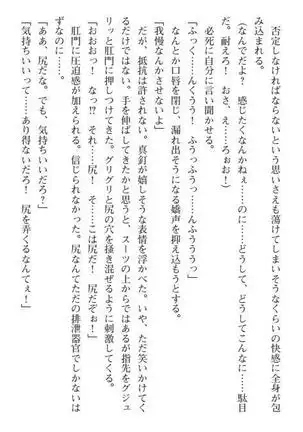 否定しなければならないという思いさえも蕩けてしまいそうなくらいの快感に全身が包
み込まれる。
（なんでだよ？　感じたくなんかねぇ……のに……どうして、どうしてこんなに……駄目
だ。耐えろ！　おさ、え……ろぉお！）
必死に自分に言い聞かせる。
「ふっく……んくうう！　ふうっふうっ……んふうううっ」
なんとか口唇を閉じ、漏れ出そうになる嬌声を抑え込もうとする。
「我慢なんかさせないよ」
だが、抵抗は許されない。真釘が嬉しそうな表情を浮かべた。いや、ただ笑いかけてく
るだけではない。手を伸ばしてきたかと思うと、スーツの上からではあるが指先をグジュ
リッと肛門に押しつけてきた。グリグリと尻の穴を掻き混ぜるように刺激してくる。
「おおお！　なっ!?　それ……尻！　そ……こは尻だ！　尻だぞぉ！」
肛門に圧迫感が加えられる。信じられなかった。尻なんてただの排泄器官でしかないは
ずなのに……。
「ああ、尻だな。でも、気持ちいいだろ？」
「気持ちいいって……あり得ないだろ！　尻を弄くるなんてぇ！」